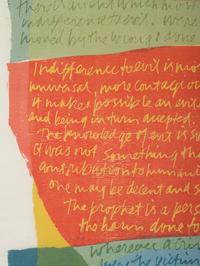 there is an evil which most
indifference to evil. We re
moved by the wrong done
Indifference to evil is mor
universal, more contagious
it makes possible an evil
and being in turn accepted.
The knowledge of evil is s
it was not something th
contribution to humani
one may be decent and s
The prophet is a pers
the harm done to
wherever a cri
were the victim